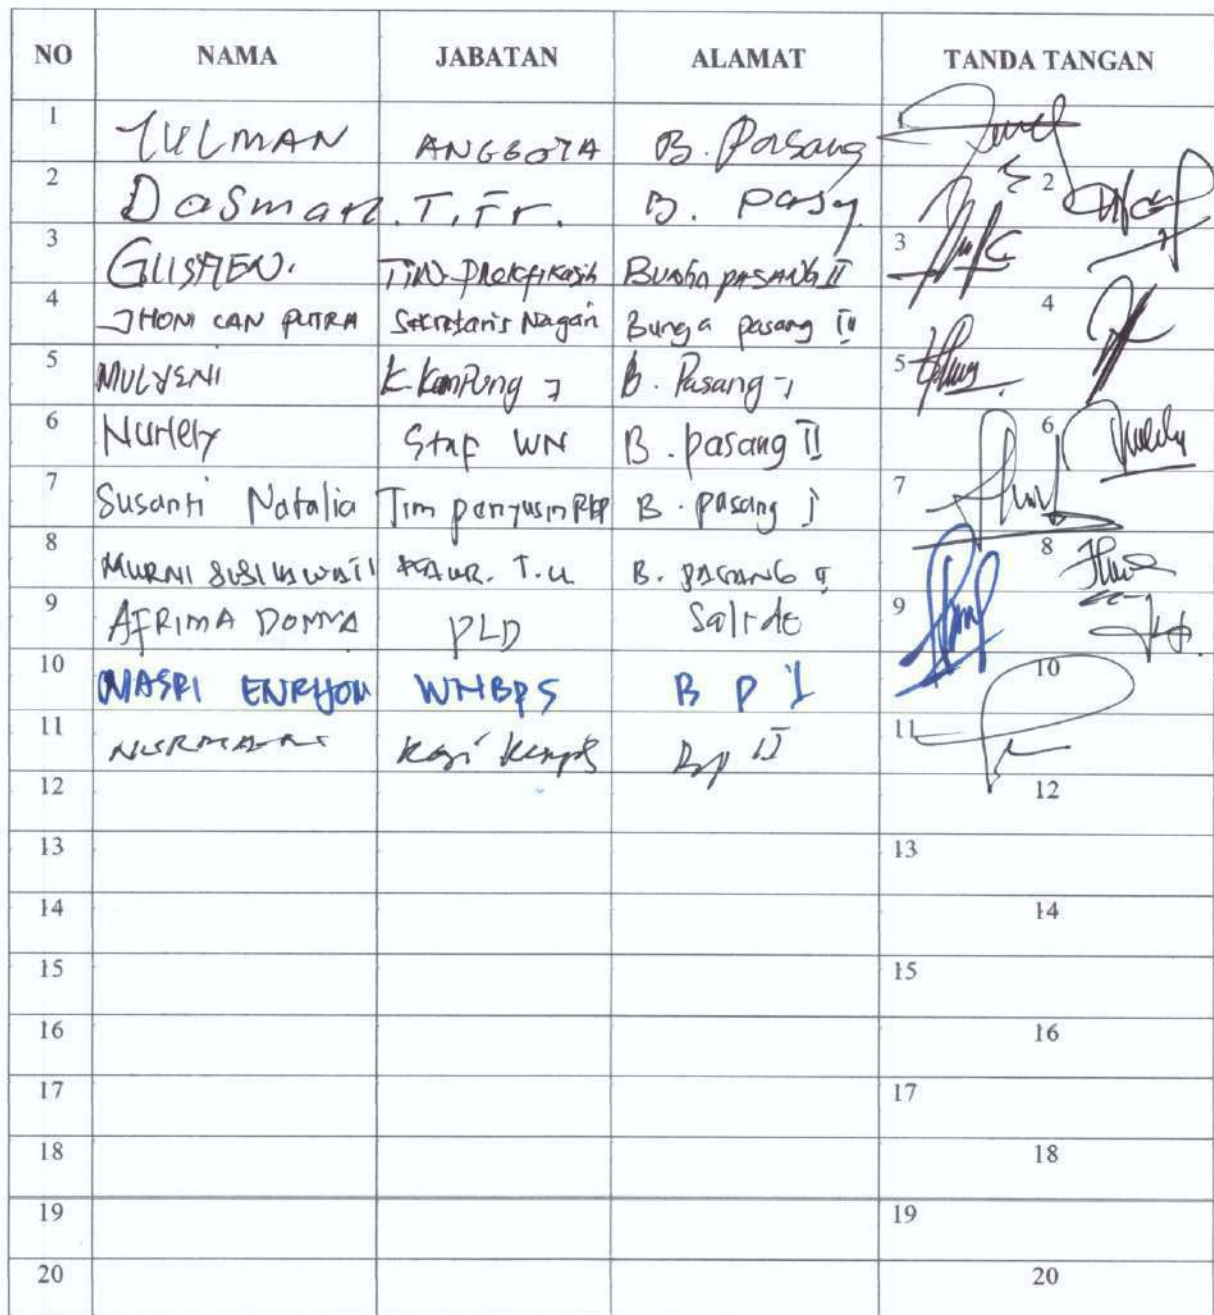 NO NAMA JABATAN ALAMAT TANDA TANGAN
1 YULMAN ANGGOTA B. Pasang 1
2 Dasman. T. Fr. B. Pasg 2
3 GUSHEN. Bunga PASANG II 3
4 JHONI CAN PUTRA Sekretaris Nagari Bunga pasang III 4
5 MULYENI K. Kampung I B. Pasang I 5
6 Nurlely Staf WN B. pasang II 6
7 Susanti Natalia Tim penyusun RKP B. pasang I 7
8 MURNI SUSILAWATI KAUR. T.U B. PASANG II 8
9 AFRIMA DONNA PLD Salido 9
10 MASRI ENRIJON WNBPS B P I 10
11 Bp II 11
12 12
13 13
14 14
15 15
16 16
17 17
18 18
19 19
20 20